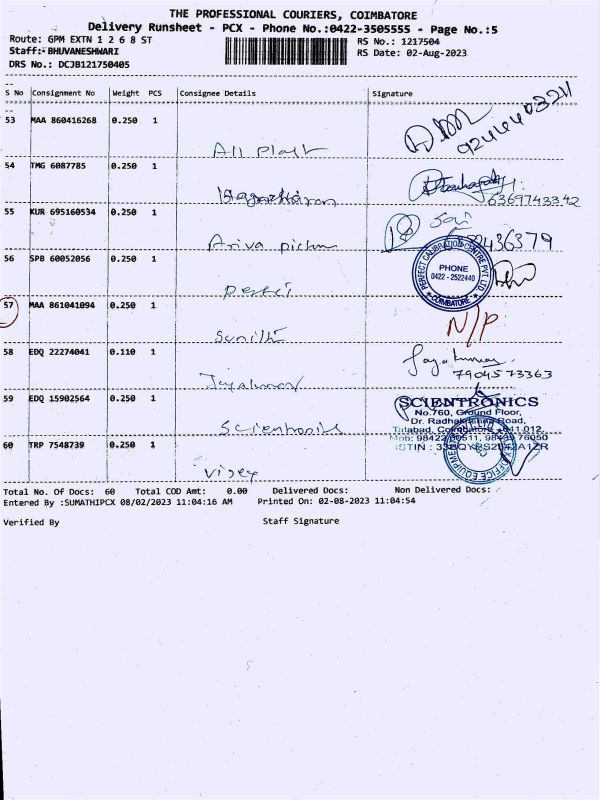 THE PROFESSIONAL COURIERS, COIMBATORE
Delivery Runsheet - PCX - Phone No.:0422-3505555 - Page No.:5
Route: GPM EXTN 1 2 6 8 ST RS No.: 1217504
Staff:- BHUVANESHWARI RS Date: 02-Aug-2023
DRS No.: DCJB121750405
S No Consignment No Weight PCS Consignee Details Signature
53 MAA 860416268 0.250 1
All Plast
54 TMG 6087785 0.250 1
6369743342
55 KUR 695160534 0.250 1 Sai
Ariva pictur
56 SPB 60052056 0.250 1
PERFECT CALIBRATION CENTRE PVT LTD
PHONE
0422 - 2522440
COIMBATORE
57 MAA 861041094 0.250 1 N/P
58 EDQ 22274041 0.110 1 Jayakumar
7904573363
Jayakumar
59 EDQ 15902564 0.250 1
SCIENTRONICS
No.760, Ground Floor,
Dr. Radhakrishna Road,
Scientronics
60 TRP 7548739 0.250 1
Vijey
Total No. Of Docs: 60 Total COD Amt: 0.00 Delivered Docs: Non Delivered Docs:
Entered By :SUMATHIPCX 08/02/2023 11:04:16 AM Printed On: 02-08-2023 11:04:54
Verified By Staff Signature